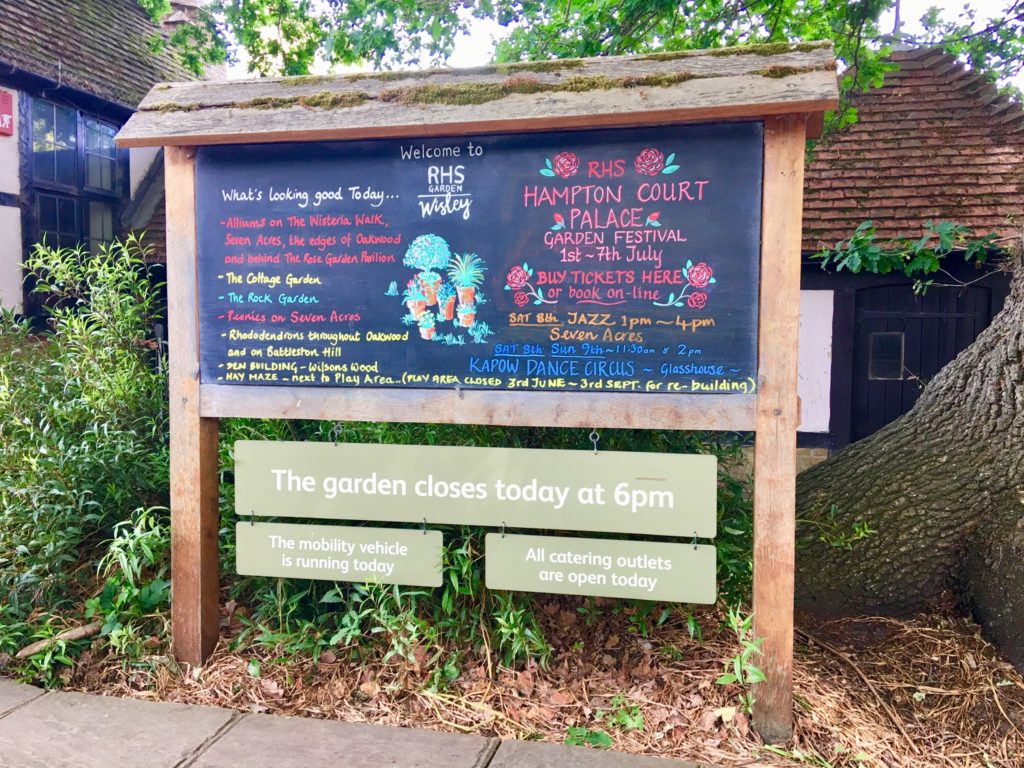 Welcome to
RHS
GARDEN
Wisley
What's looking good Today...
- Alliums on The Wisteria Walk,
Seven Acres, the edges of Oakwood
and behind The Rose Garden Pavilion
- The Cottage Garden
- The Rock Garden
- Peonies on Seven Acres
- Rhododendrons throughout Oakwood
and on Battleston Hill
- PEN BUILDING - Wilsons Wood
- HAY MAZE - next to Play Area... (PLAY AREA CLOSED 3rd JUNE ~ 3rd SEPT. for re-building)
RHS
HAMPTON COURT
PALACE
GARDEN FESTIVAL
1st ~ 7th July
BUY TICKETS HERE
or book on-line
SAT 8th JAZZ 1pm ~ 4pm
Seven Acres
SAT 8th Sun 9th ~ 11:30am & 2pm
KAPOW DANCE CIRCUS ~ Glasshouse ~
The garden closes today at 6pm
The mobility vehicle
is running today
All catering outlets
are open today